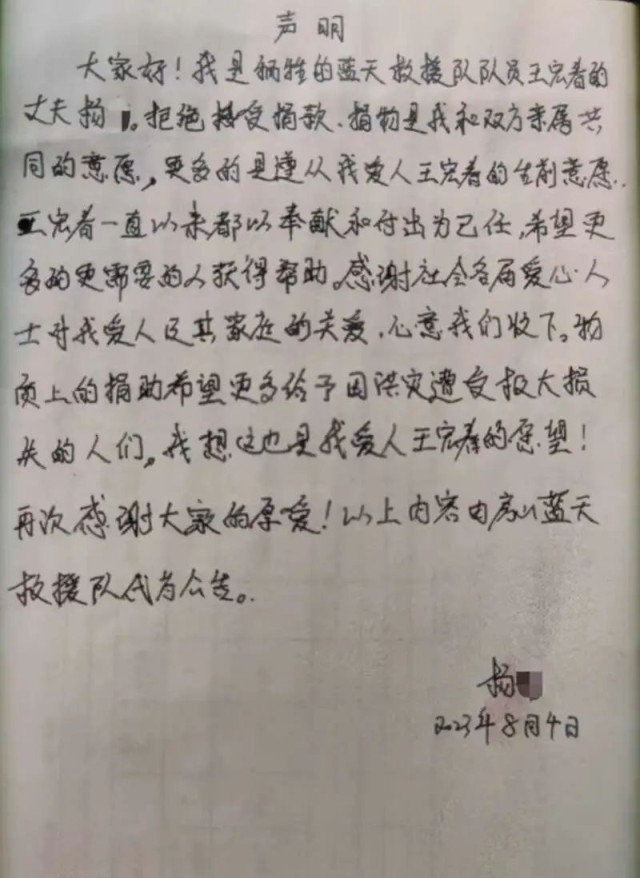 声明
大家好！我是牺牲的蓝天救援队队员王宏春的
丈夫杨。拒绝接受捐款、捐物是我和双方亲属共
同的意愿，更多的是遵从我爱人王宏春的生前意愿.
王宏春一直以来都以奉献和付出为己任，希望更
多的更需要的人获得帮助。感谢社会各届爱心人
士对我爱人及其家庭的关爱，心意我们收下。物
质上的捐助希望更多给予因洪灾遭受极大损
失的人们，我想这也是我爱人王宏春的愿望！
再次感谢大家的厚爱！以上内容由房山蓝天
救援队代为公告。
杨
2023年8月4日